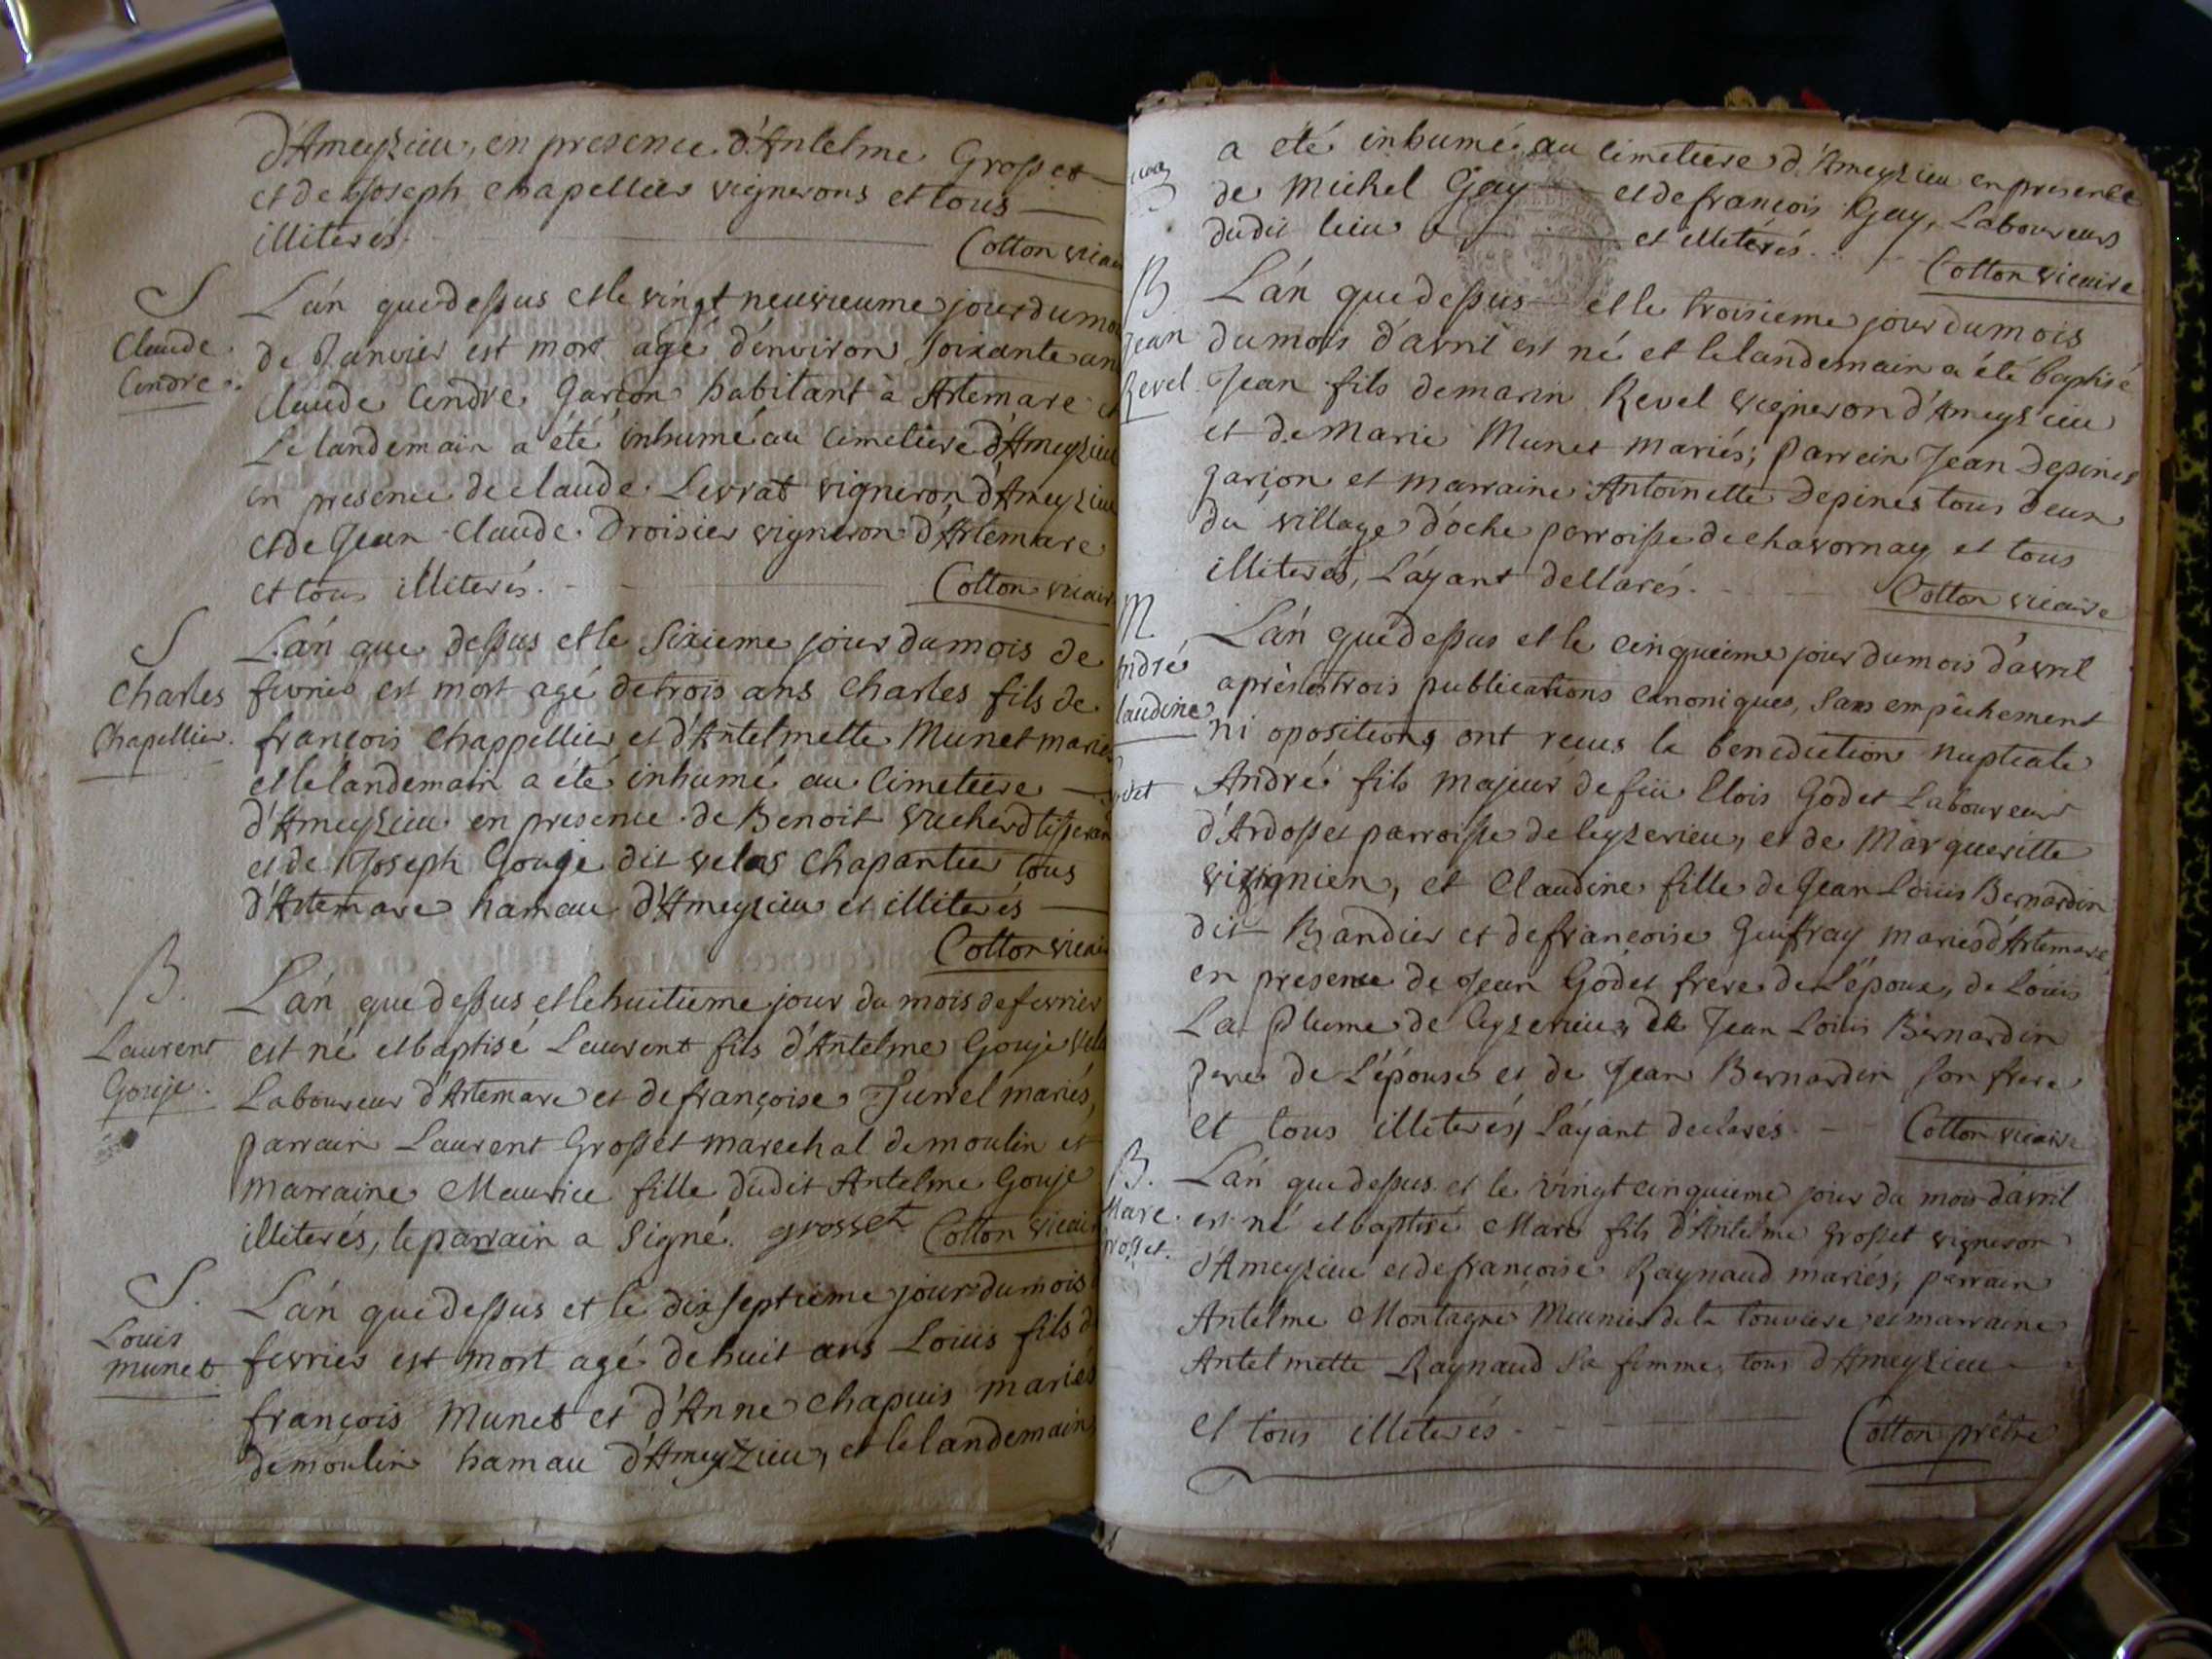 d'Ameyzieu, en presence d'Antelme Grosset
et de Joseph chapellier vignerons et tous
illiterés.
Cotton vicai
S
Claude
Cendre.
L'an que dessus et le vingt neuvieume jour du moi
de Janvier est mort agé d'environ soixante an
Claude Cendre garçon habitant à Artemare et
Le landemain a été inhumé au Cimetiere d'Ameyzieu
en presence de claude Levrat vigneron d'Ameyzieu
et de Jean-Claude Droisier vigneron d'Artemare
et tous illiterés.
Cotton vicair
S
Charles
Chapellier.
L'an que dessus et le sixieme jour du mois de
fevrier est mort agé de trois ans Charles fils de
françois Chappellier et d'Antelmette Munet mariés
et le landemain a été inhumé au Cimetiere
d'Ameyzieu en presence de Benoit Vucherd tisseran
et de Joseph Gouje dit velas Chapantier tous
d'Artemare hamau d'Ameyzieu et illiterés
Cotton vicai
B.
Laurent
Gouje.
L'an que dessus et le huitieme jour du mois de fevrier
est né et baptisé Laurent fils d'Antelme Gouje vela
Laboureur d'Artemare et de françoise Jurrel mariés,
parrain Laurent Grosset marechal de moulin et
marraine Maurice fille dudit Antelme Gouje
illiterés, le parrain a signé. grosset Cotton vicair
S.
Louis
munet
L'an que dessus et le dix septieme jour du mois d
fevrier est mort agé de huit ans Loüis fils d
françois Munet et d'Anne Chapuis mariés
de moulin hamau d'Ameyzieu, et le landemain
a été inhumé au cimetiere d'Ameyzieu en presence
de Michel Gay et de françois Gay, Laboureurs
dudit lieu et illiterés.
Cotton vicaire
B
Jean
Revel
L'an que dessus et le troisieme jour du mois
du mois d'avril est né et le landemain a été baptisé
Jean fils de marin Revel vigneron d'Ameyzieu
et de Marie Munet mariés; parrein Jean Depines
garçon et marraine Antoinette Depines tous deux
du village d'oche parroisse de chavornay et tous
illiterés, L'ayant dellarés.
Cotton vicaire
M
André
laudine
L'an que dessus et le cinquieme jour du mois d'avril
après les trois publications canoniques, sans empêchement
ni opositions ont reçus la benediction nuptiale
André fils majeur de feü Elois Godet Laboureur
d'Ardosset parroisse de leyzerieu, et de Margueritte
vizignien, et Claudine fille de Jean Loüis Bernardin
dit Bandier et de françoise Geuffray mariés d'Artemare,
en presence de Jean Godet frere de L'époux, de Loüis
La plume de leyzerieu, de Jean Loüis Bernardin
pere de L'épouse et de Jean Bernardin son frere
et tous illiterés, L'ayant declarés. Cotton vicaire
B.
Marc
rosset.
L'an que dessus et le vingt cinquieme jour du mois d'avril
est né et baptisé Marc fils d'Antelme grosset vigneron
d'Ameyzieu et de françoise Raynaud mariés, parrain
Antelme Montagne Meunier de la touviere et marraine
Antelmette Raynaud sa femme, tous d'Ameyzieu
et tous illiterés.
Cotton prêtre